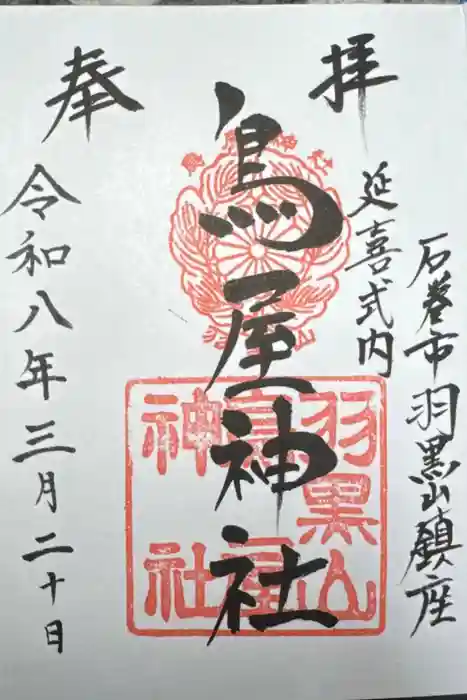 奉拝
延喜式内
石巻市羽黒山鎮座
鳥屋神社
令和八年三月二十日
羽黒山
鳥屋
神社